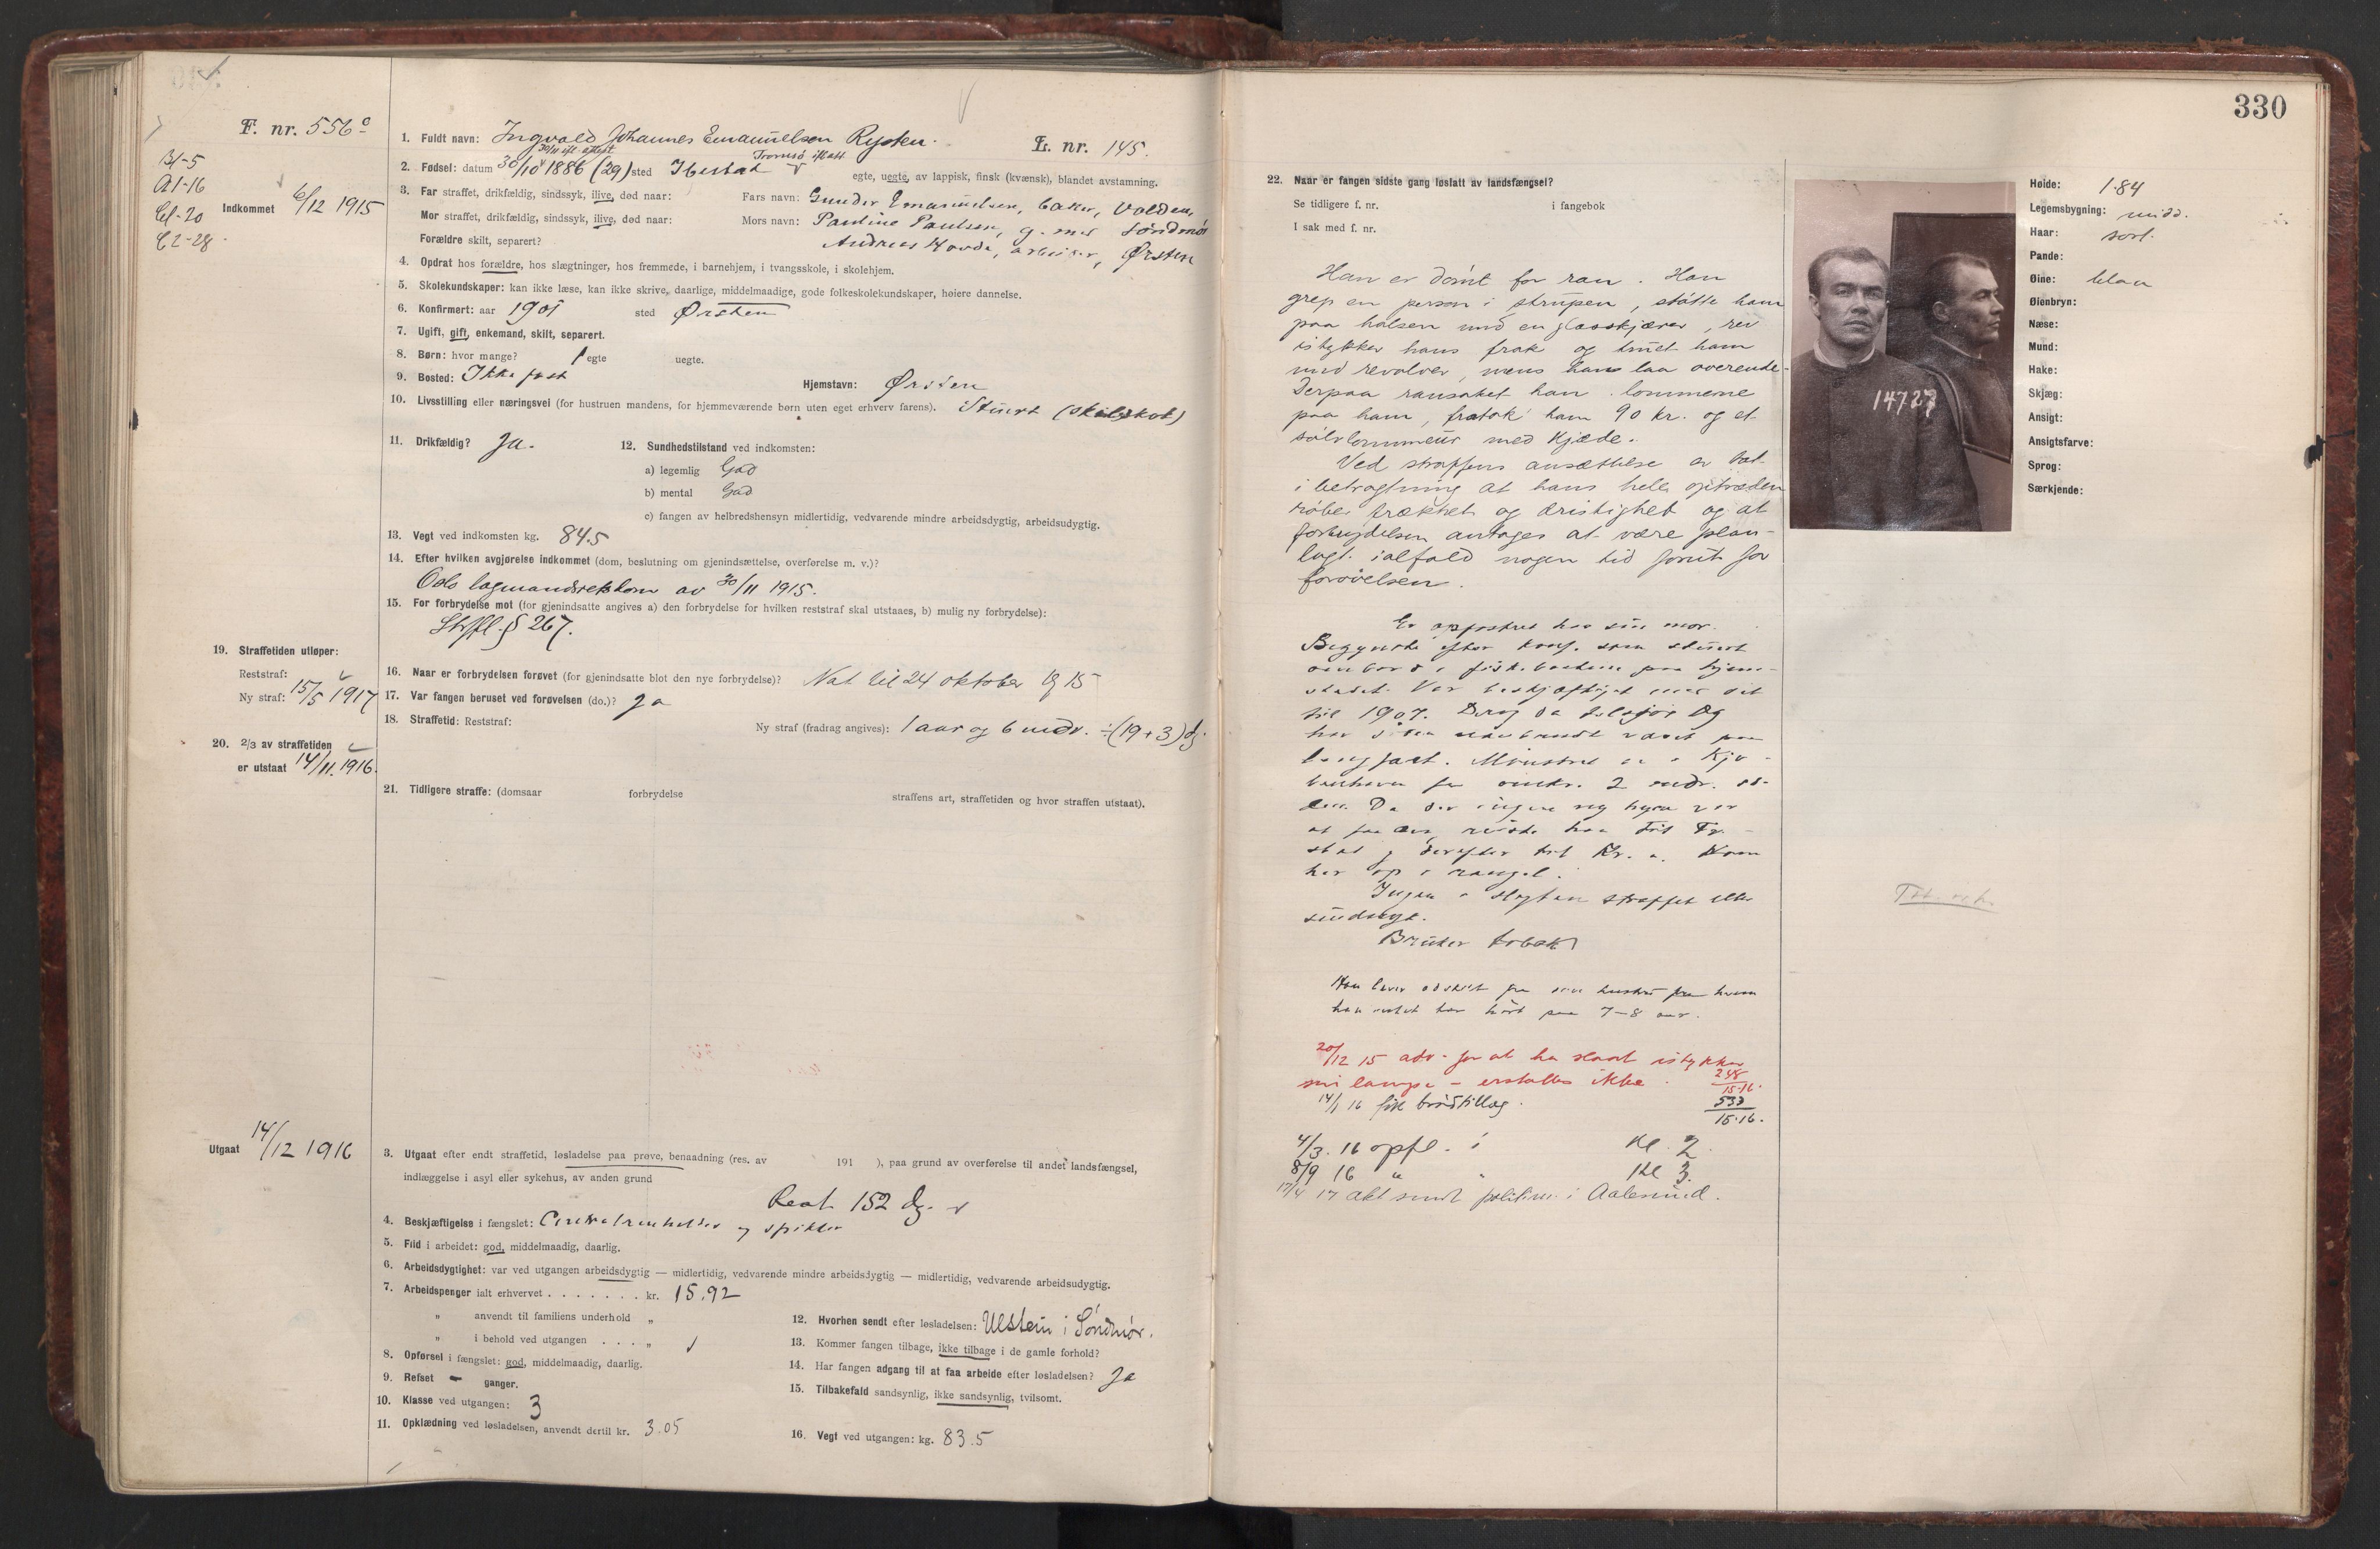 330
F. nr. 556 c
L. nr. 145.
B1-5
A1-16
C1-20
C2-28
Indkommet 6/12 1915
1. Fuldt navn: Ingvald Johannes Emanuelsen Rysten.
30/11 ifl. attest
Tromsö ifl att
2. Fødsel: datum 30/10 1886 (29) sted Ibestad
egte, uegte, av lappisk, finsk (kvænsk), blandet avstamning.
3. Far straffet, drikfældig, sindssyk, ilive, død naar:
Fars navn: Gunder Emanuelsen, baker, Volden,
Mor straffet, drikfældig, sindssyk, ilive, død naar:
Mors navn: Pauline Paulsen, g. med Söndmör
Forældre skilt, separert?
Andreas Hovde, arbeider, Ørsten
4. Opdrat hos forældre, hos slægtninger, hos fremmede, i barnehjem, i tvangsskole, i skolehjem.
5. Skolekundskaper: kan ikke læse, kan ikke skrive, daarlige, middelmaadige, gode folkeskolekundskaper, høiere dannelse.
6. Konfirmert: aar 1901 sted Ørsten
7. Ugift, gift, enkemand, skilt, separert.
8. Børn: hvor mange? 1 egte uegte.
9. Bosted: Ikke fast
Hjemstavn: Ørsten
10. Livsstilling eller næringsvei (for hustruen mandens, for hjemmeværende børn uten eget erhverv farens). Stuert
11. Drikfældig? Ja.
12. Sundhedstilstand ved indkomsten:
a) legemlig God
b) mental God
c) fangen av helbredshensyn midlertidig, vedvarende mindre arbeidsdygtig, arbeidsudygtig.
13. Vegt ved indkomsten kg. 84.5
14. Efter hvilken avgjørelse indkommet (dom, beslutning om gjenindsættelse, overførelse m. v.)?
Oslo lagmandsretsdom av 30/11 1915.
15. For forbrydelse mot (for gjenindsatte angives a) den forbrydelse for hvilken reststraf skal utstaaes, b) mulig ny forbrydelse):
Strfl. § 267.
19. Straffetiden utløper:
Reststraf:
Ny straf: 15/5 1917
16. Naar er forbrydelsen forøvet (for gjenindsatte blot den nye forbrydelse)? Nat til 24 oktober 1915
17. Var fangen beruset ved forøvelsen (do.)? Ja
18. Straffetid: Reststraf:
Ny straf (fradrag angives): 1 aar og 6 mdr. ÷ (19+3) dg.
20. 2/3 av straffetiden
er utstaat 14/11. 1916.
21. Tidligere straffe: (domsaar forbrydelse straffens art, straffetiden og hvor straffen utstaat).
Utgaat 14/12 1916
3. Utgaat efter endt straffetid, løsladelse paa prøve, benaadning (res. av 191 ), paa grund av overførelse til andet landsfængsel,
indlæggelse i asyl eller sykehus, av anden grund
Rest 152 dg.
4. Beskjæftigelse i fængslet: og spikker
5. Flid i arbeidet: god, middelmaadig, daarlig.
6. Arbeidsdygtighet: var ved utgangen arbeidsdygtig — midlertidig, vedvarende mindre arbeidsdygtig — midlertidig, vedvarende arbeidsudygtig.
7. Arbeidspenger ialt erhvervet . . . . . . . kr. 15.92
" anvendt til familiens underhold "
" i behold ved utgangen . . . . "
8. Opførsel i fængslet: god, middelmaadig, daarlig.
9. Refset - ganger.
10. Klasse ved utgangen: 3
11. Opklædning ved løsladelsen, anvendt dertil kr. 3.05
12. Hvorhen sendt efter løsladelsen: Ulstein i Söndmör.
13. Kommer fangen tilbage, ikke tilbage i de gamle forhold?
14. Har fangen adgang til at faa arbeide efter løsladelsen? Ja
15. Tilbakefald sandsynlig, ikke sandsynlig, tvilsomt.
16. Vegt ved utgangen: kg. 83.5
22. Naar er fangen sidste gang løslatt av landsfængsel?
Se tidligere f. nr. i fangebok
I sak med f. nr.
Han er dömt for ran. Han
grep en person i strupen, stötte ham
paa halsen med en glasskjærer, rev
istykker hans frak og truet ham
med revolver, mens han laa overende.
Derpaa ransaket han lommerne
paa ham, fratok ham 90 kr. og et
sölvlommeur med kjæde.
Ved straffens ansættelse er tat
i betragtning at hans hele optræden
röber frækhet og dristighet og at
forbrydelsen antages at være plan-
lagt ialfald nogen tid forut for
forövelsen.
Er opfostret hos sin mor.
Begyndte efter konf. som stuert
ombord i paa hjem-
stedet. Var beskjæftiget med det
til 1907. Derog da tilsjös og
har siden været paa
langfart. Mönstret av i Kjö-
benhavn for omkr. 2 mdr. si-
den. Da der ingen ny hyre var
at faa der, reiste han til Fr.-
stad og derefter til Kr.a. Kom
her op i rangel.
Ingen i slegten straffet eller
sindssyk.
Bruker tobak
Han lever adskilt fra sin hustru fra hvem
han intet har hört paa 7-8 aar.
20/12 15 adv. for at ha slaat istykker
sin lampe - erstattes ikke. 248/15-16.
14/1 16 fik brödtillæg. 533/15-16.
4/3. 16 opfl. i Kl. 2.
8/9 16 " " Kl 3.
17/4 17 akt sendt politim. i Aalesund.
14727
Høide: 1.84
Legemsbygning: midd.
Haar: sort.
Pande:
Øine: blaa
Øienbryn:
Næse:
Mund:
Hake:
Skjæg:
Ansigt:
Ansigtsfarve:
Sprog:
Særkjende: